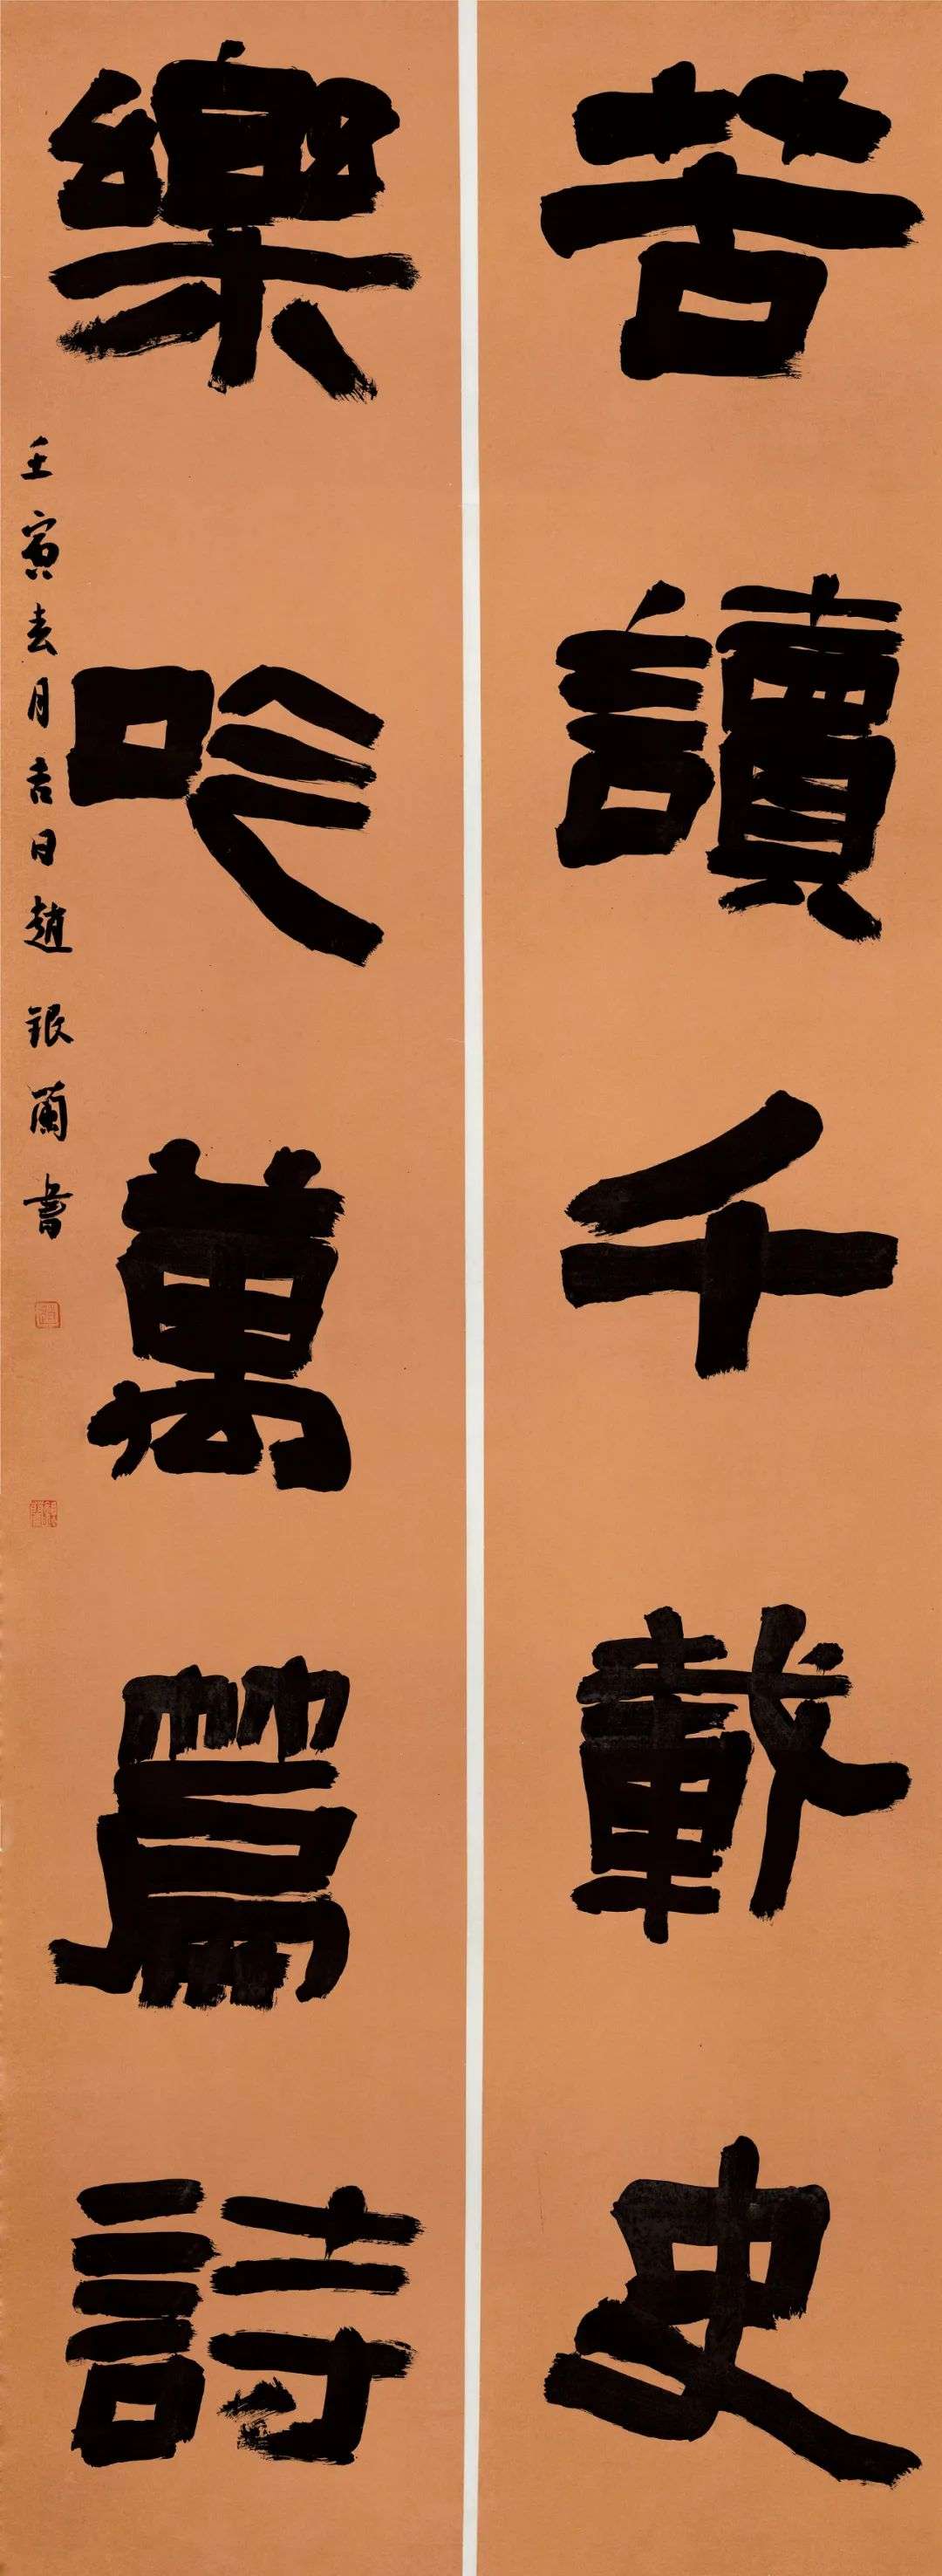 苦讀千載史
樂吟萬篇詩
壬寅春月吉日趙銀蘭書